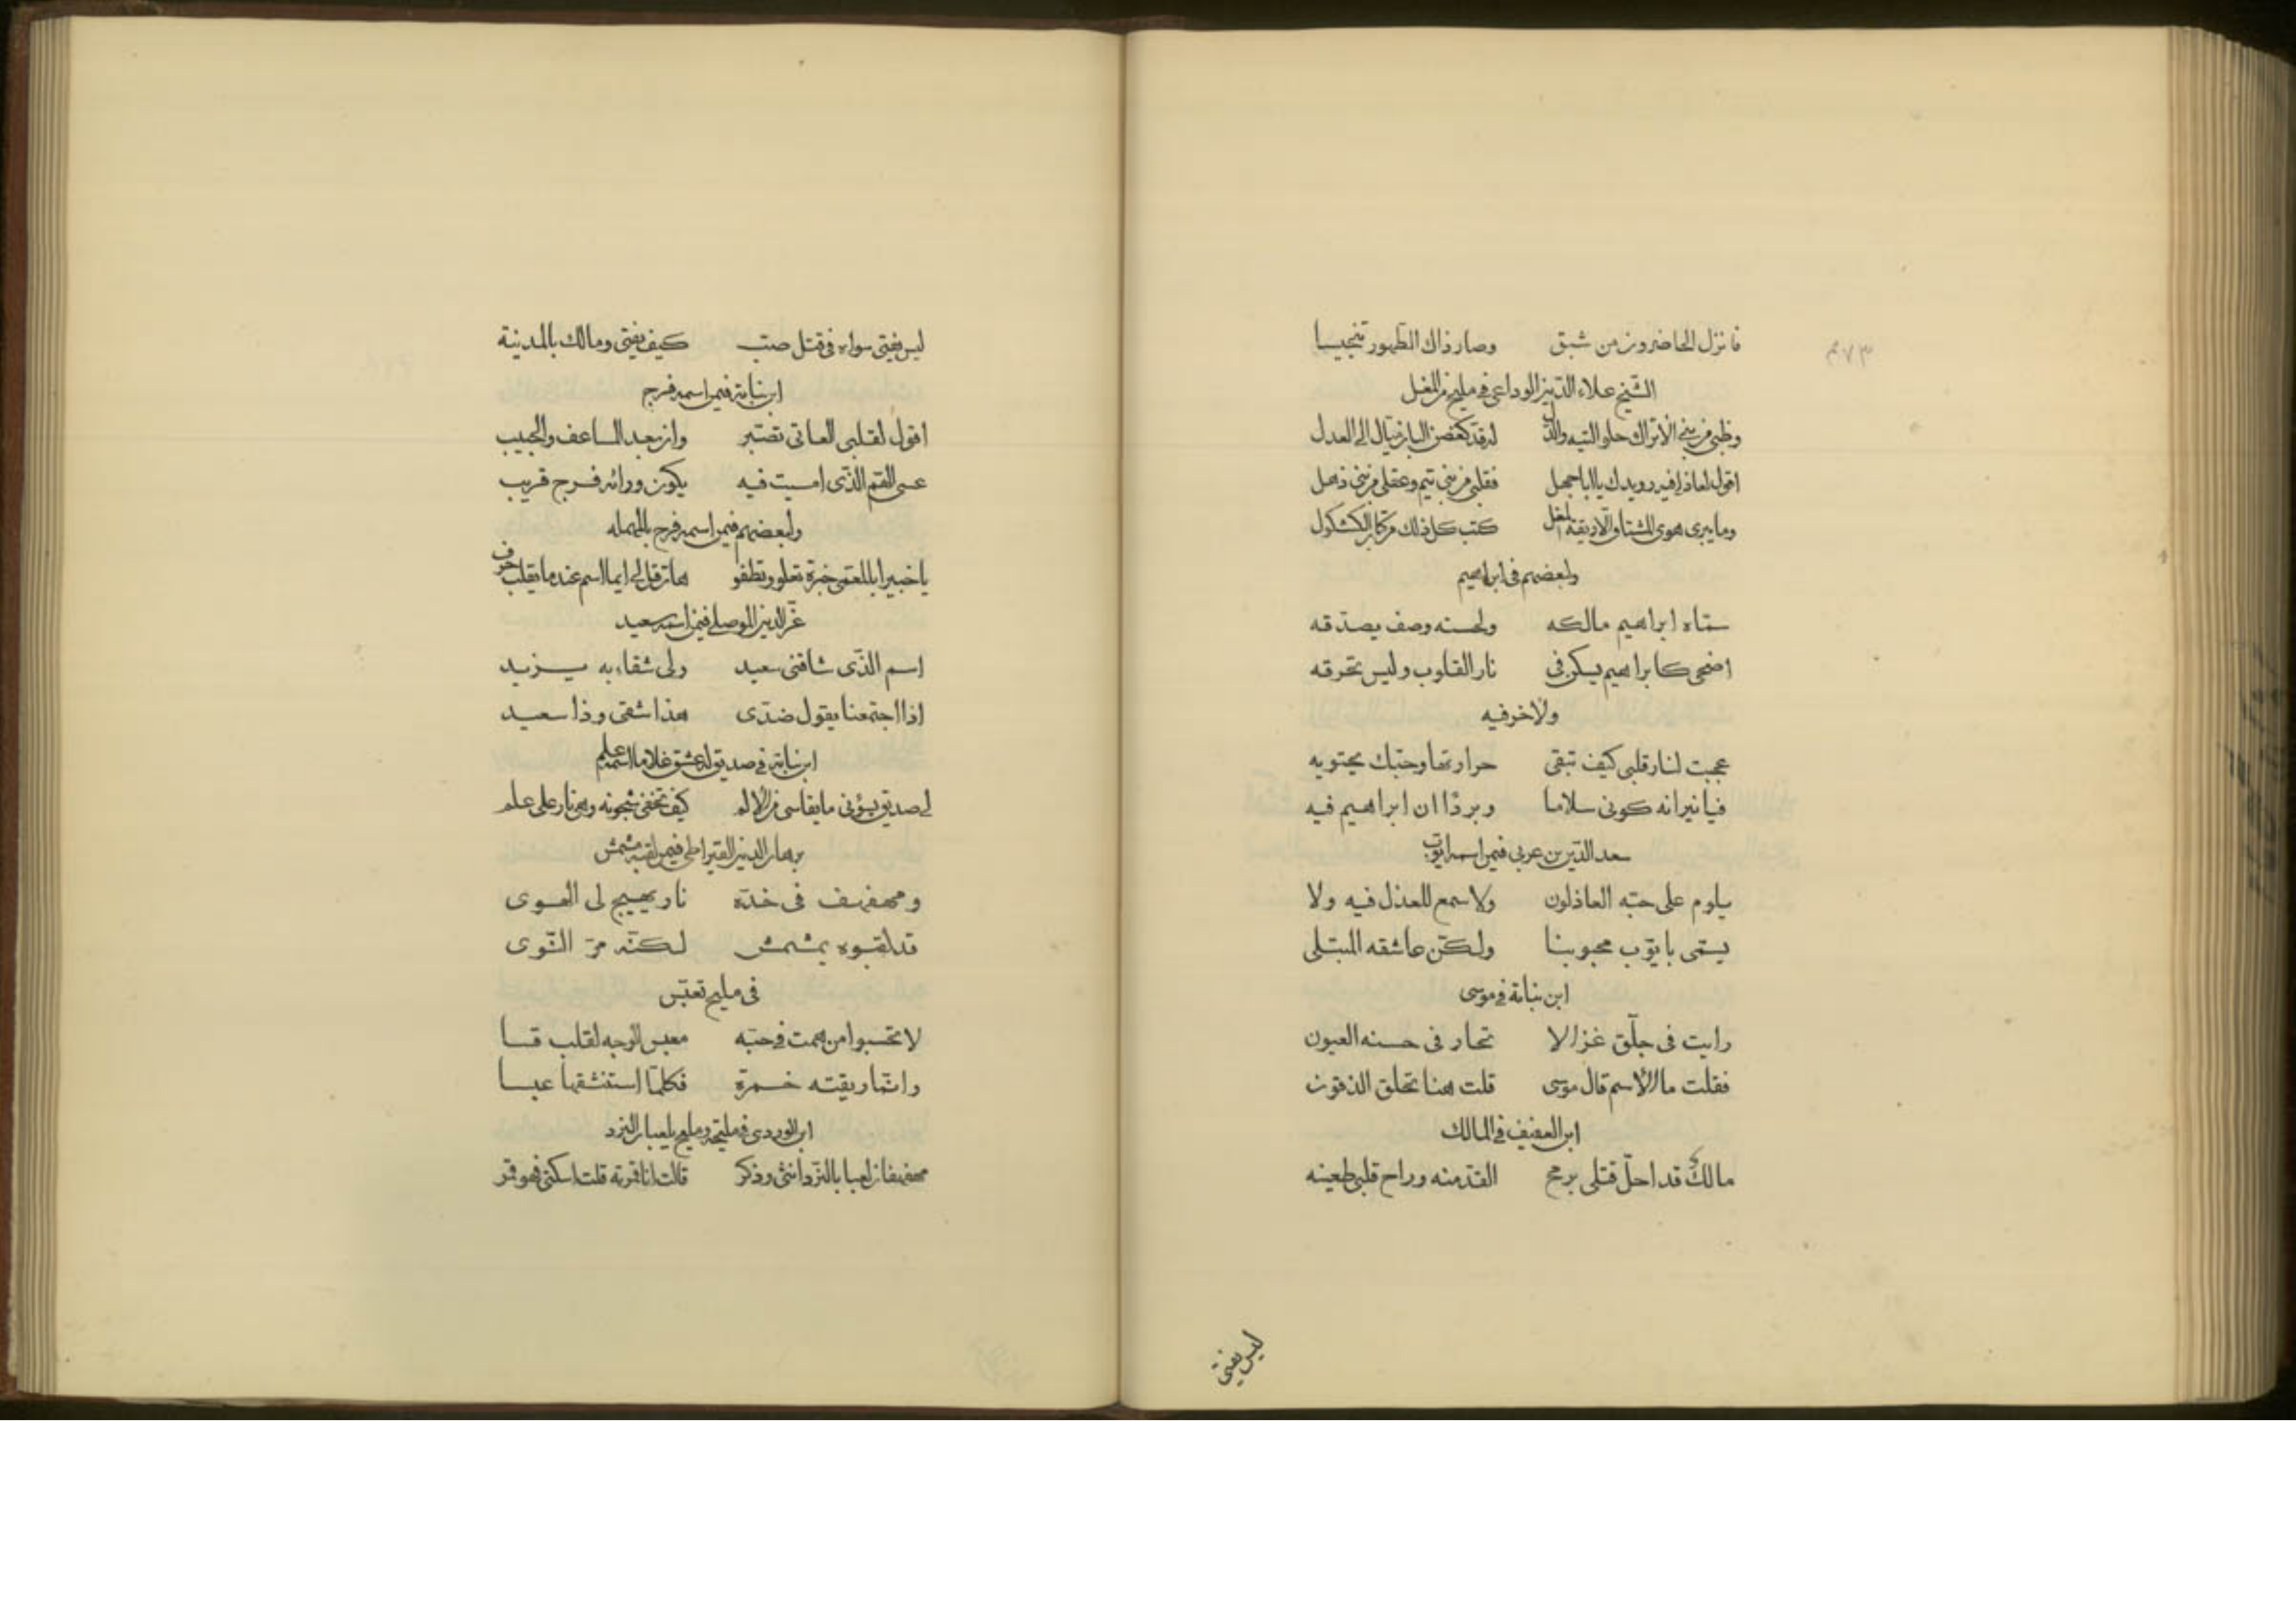 فانزل الحاضرون من شبق وصار ذاك الطهور تنجيسا
٣٧٣
الشيخ علاء الدين الوداعي في مليح من المغل
وظبي من بني الاتراك حلو التيه والدل له قد كغصن البان ميال الى العدل
اقول لعاذلي فيه رويدك يا ابا جهل فقلبي من بني تيم وعقلي من بني ذهل
وما يبرى هوى المشتاق الا ريقة المغل كتب كل ذلك من كتاب الكشكول
ولبعضهم في ابراهيم
سماه ابراهيم مالكه ولحسنه وصف يصدقه
اضحى كابراهيم يسكن في نار القلوب وليس تحرقه
ولاخر فيه
عجبت لنار قلبي كيف تبقى حرارتها وحبك يحتويه
فيا نيرانه كوني سلاما وبردا ان ابراهيم فيه
سعد الدين بن عربي فيمن اسمه ايوب
يلوم على حبه العاذلون ولا سمع للعذل فيه ولا
يسمى بايوب محبوبنا ولكن عاشقه المبتلى
ابن نباتة في موسى
رايت في جلق غزالا تحار في حسنه العيون
فقلت ما الاسم قال موسى قلت هنا تحلق الذقون
ابن العفيف في المالك
مالك قد احل قتلي برمح القد منه وراح قلبي طعينه
ليس يفتي
ليس يفتي سواه في قتل صب كيف يفتي ومالك بالمدينة
ابن نباتة فيمن اسمه فرج
اقول لقلبي العاني تصبر وان بعد المساعف والحبيب
عسى الهم الذي امسيت فيه يكون ورائه فرج قريب
ولبعضهم فيمن اسمه فرح بالمهمله
يا خبيرا بالمعمى خبرة تعلو وتطفو هات قل لي ايما اسم عندما يقلب حرف
عز الدين الموصلي فيمن اسمه سعيد
اسم الذي شاقني سعيد ولي شقاء به يزيد
اذا اجتمعنا يقول ضدي هذا شقي وذا سعيد
ابن نباتة في صديق له عشق غلاما اسمه علم
لي صديق يسؤني ما يقاسي من الالم كيف تخفى شجونه وهي نار على علم
برهان الدين القيراطي فيمن لقبه مشمش
ومهفهف في خده نار يهيج لي الهوى
قد لقبوه بمشمش لكنه مر النوى
في مليح تعبس
لا تحسبوا من همت في حبه معبس الوجه لقلب قسا
وانما ريقته خمرة فكلما استنشقها عبسا
ابن الوردي في مليحة ومليح يلعبان النرد
مهفهفان لعبا بالنرد انثى وذكر قالت انا قمرته قلت اسكتي فهو قمر